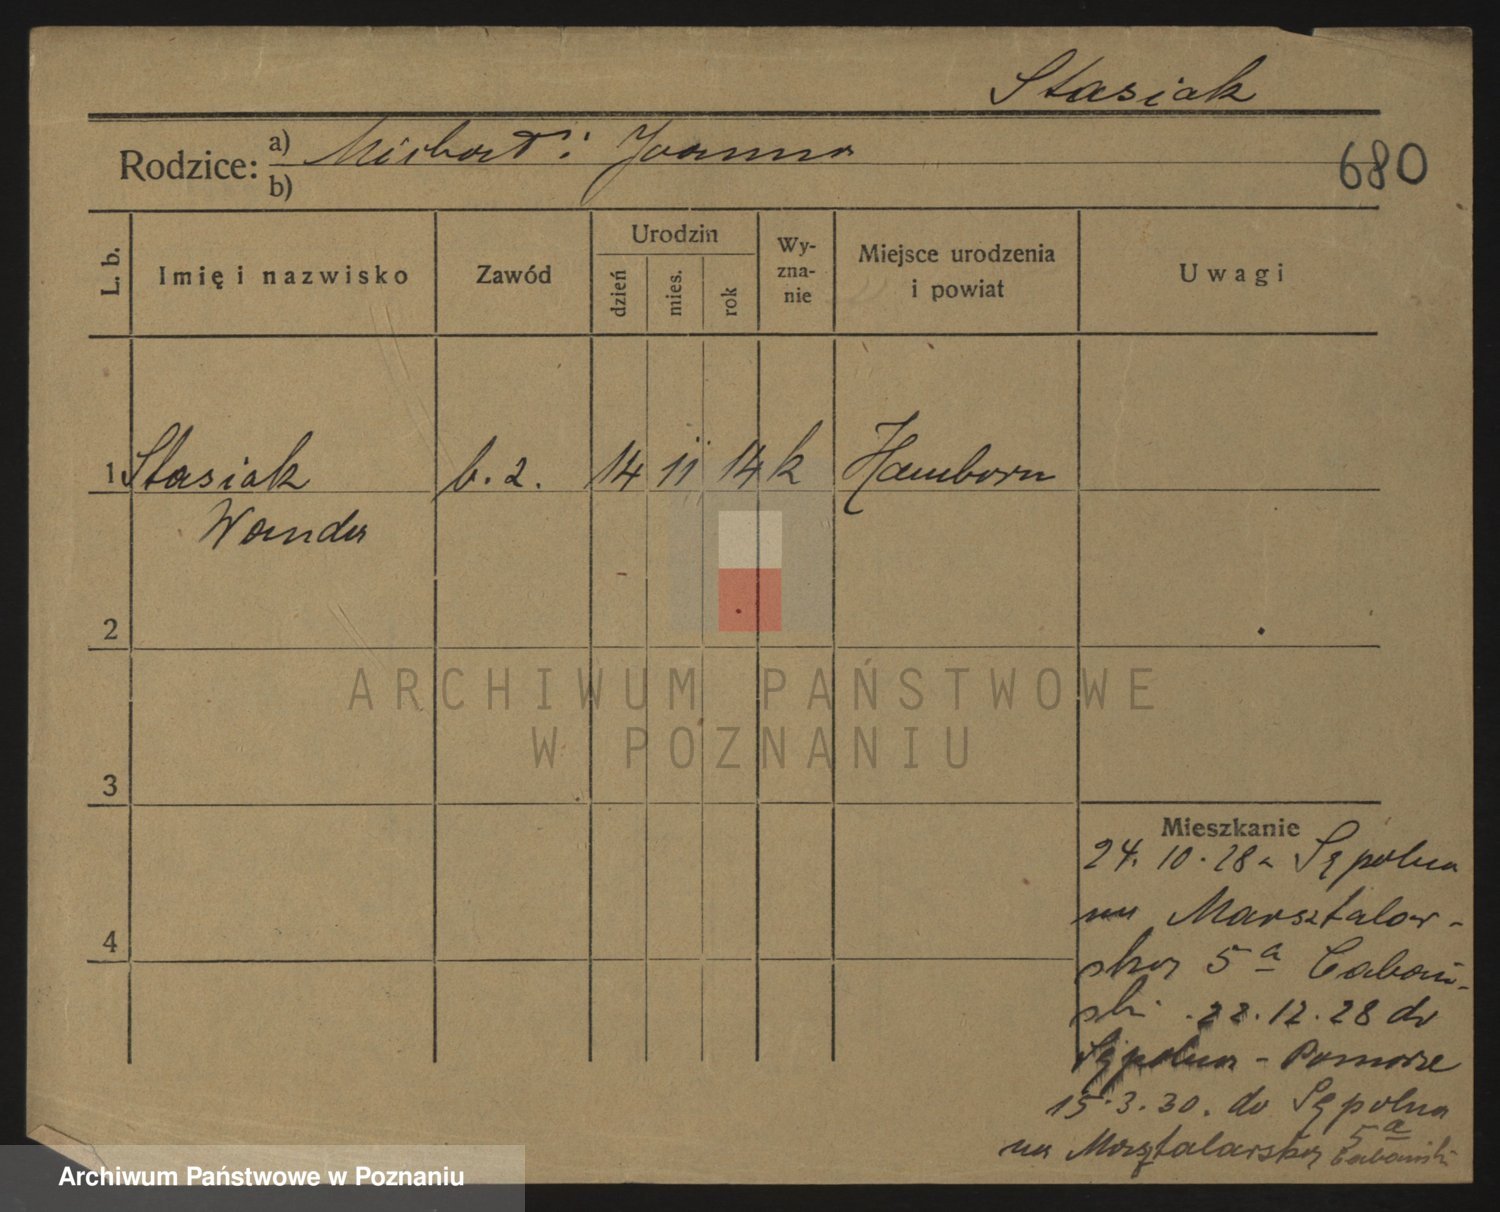 Stasiak
Rodzice: a) Michał i Joanna
b)
680
L. b.
Imię i nazwisko
Zawód
Urodzin
dzień
mies.
rok
Wy-
zna-
nie
Miejsce urodzenia
i powiat
Uwagi
1 Stasiak b. z. 14 11 14 k Hamborn
Wanda
2
3
4
ARCHIWUM PAŃSTWOWE
W POZNANIU
Mieszkanie
24. 10. 28 z Sępolna
na Marsztalar-
ską 5a Cabań-
ski 22. 12. 28 do
Sępolna - Pomorze
15. 3. 30. do Sępolna
na Marsztalarską 5a
Cabański
Archiwum Państwowe w Poznaniu